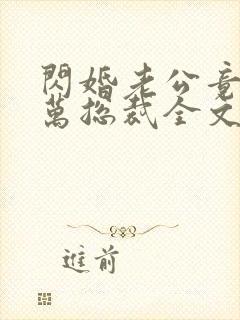 閃婚老公竟
萬總裁全文
進前